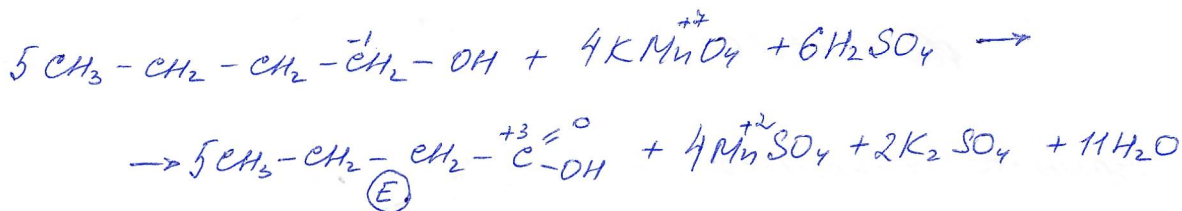 5CH₃ - CH₂ - CH₂ - C⁻¹H₂ - OH + 4KMn⁺⁷O₄ + 6H₂SO₄ →
→ 5CH₃ - CH₂ - CH₂ - C⁺³(=O)-OH + 4Mn⁺²SO₄ + 2K₂SO₄ + 11H₂O
E